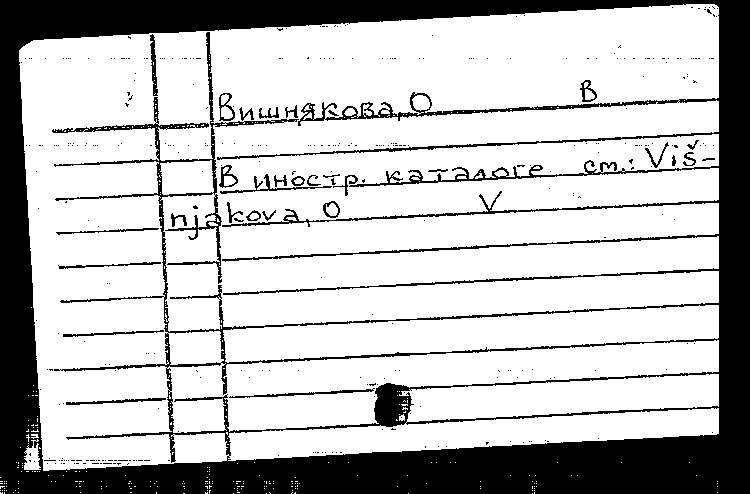 Вишнякова, О В
В иностр. каталоге см.: Viš-
njakova, O V